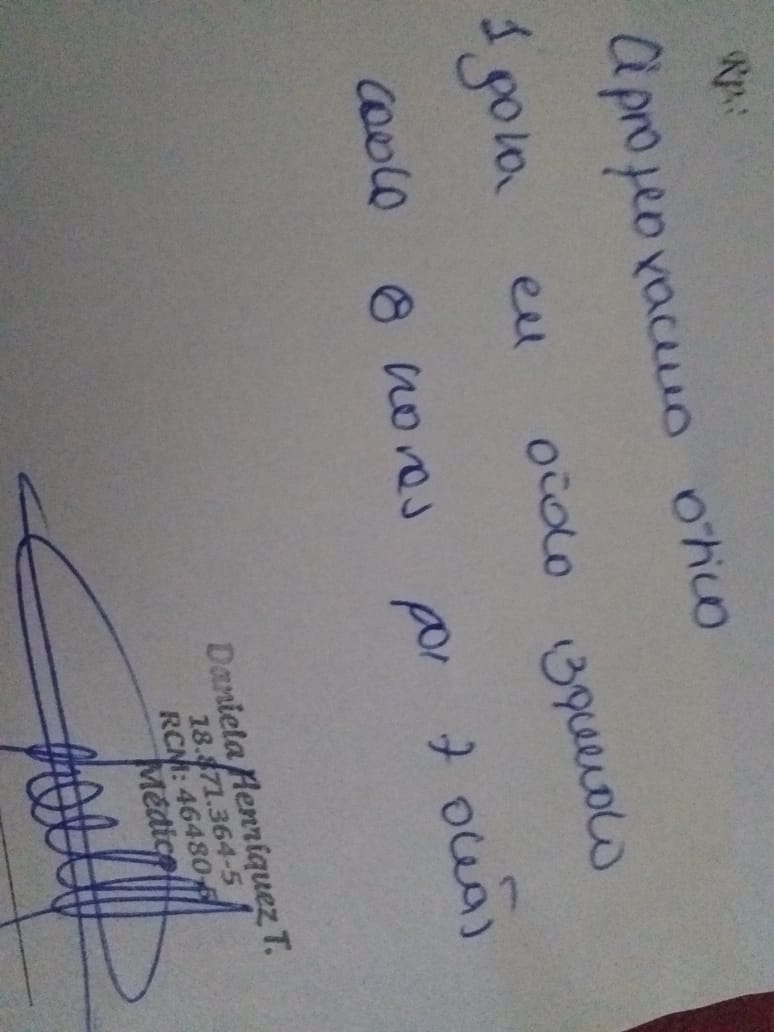 Rp:
Ciprofloxacino ótico
1 gota en oído izquierdo
cada 8 horas por 7 días
Daniela Henríquez T.
18.871.364-5
RCM: 46480-6
Médico